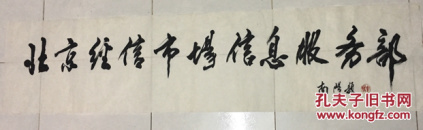 北京经信市場信息服务部
孔夫子旧书网
www.kongfz.com